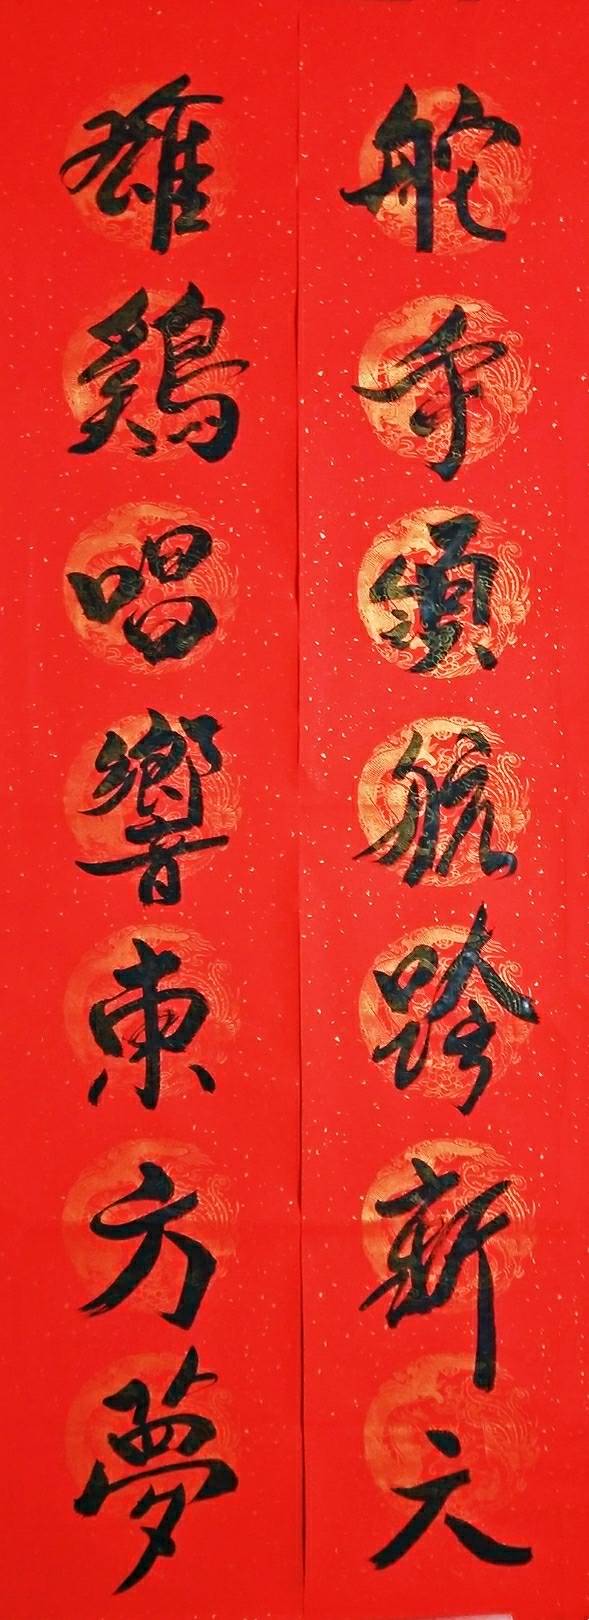 舵手領航跨新元
雄鷄唱響東方夢